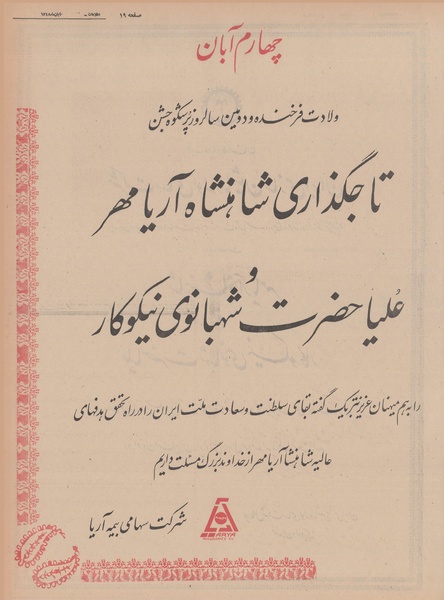 صفحه ۱۹
چهارم آبان
ولادت فرخنده و دومین سالروز پرشکوه جشن
تاجگذاری شاهنشاه آریامهر
و
علیاحضرت شهبانوی نیکوکار
را به هم میهنان عزیز تبریک گفته بقای سلطنت و سعادت ملت ایران را در راه تحقق هدفهای
عالیه شاهنشاه آریامهر از خداوند بزرگ مسئلت داریم
شرکت سهامی بیمه آریا
ARYA